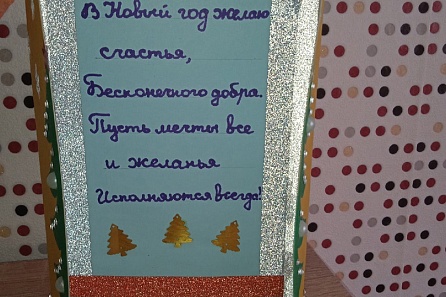 В Новый год желаю
счастья,
Бесконечного добра.
Пусть мечты все
и желанья
Исполняются всегда!